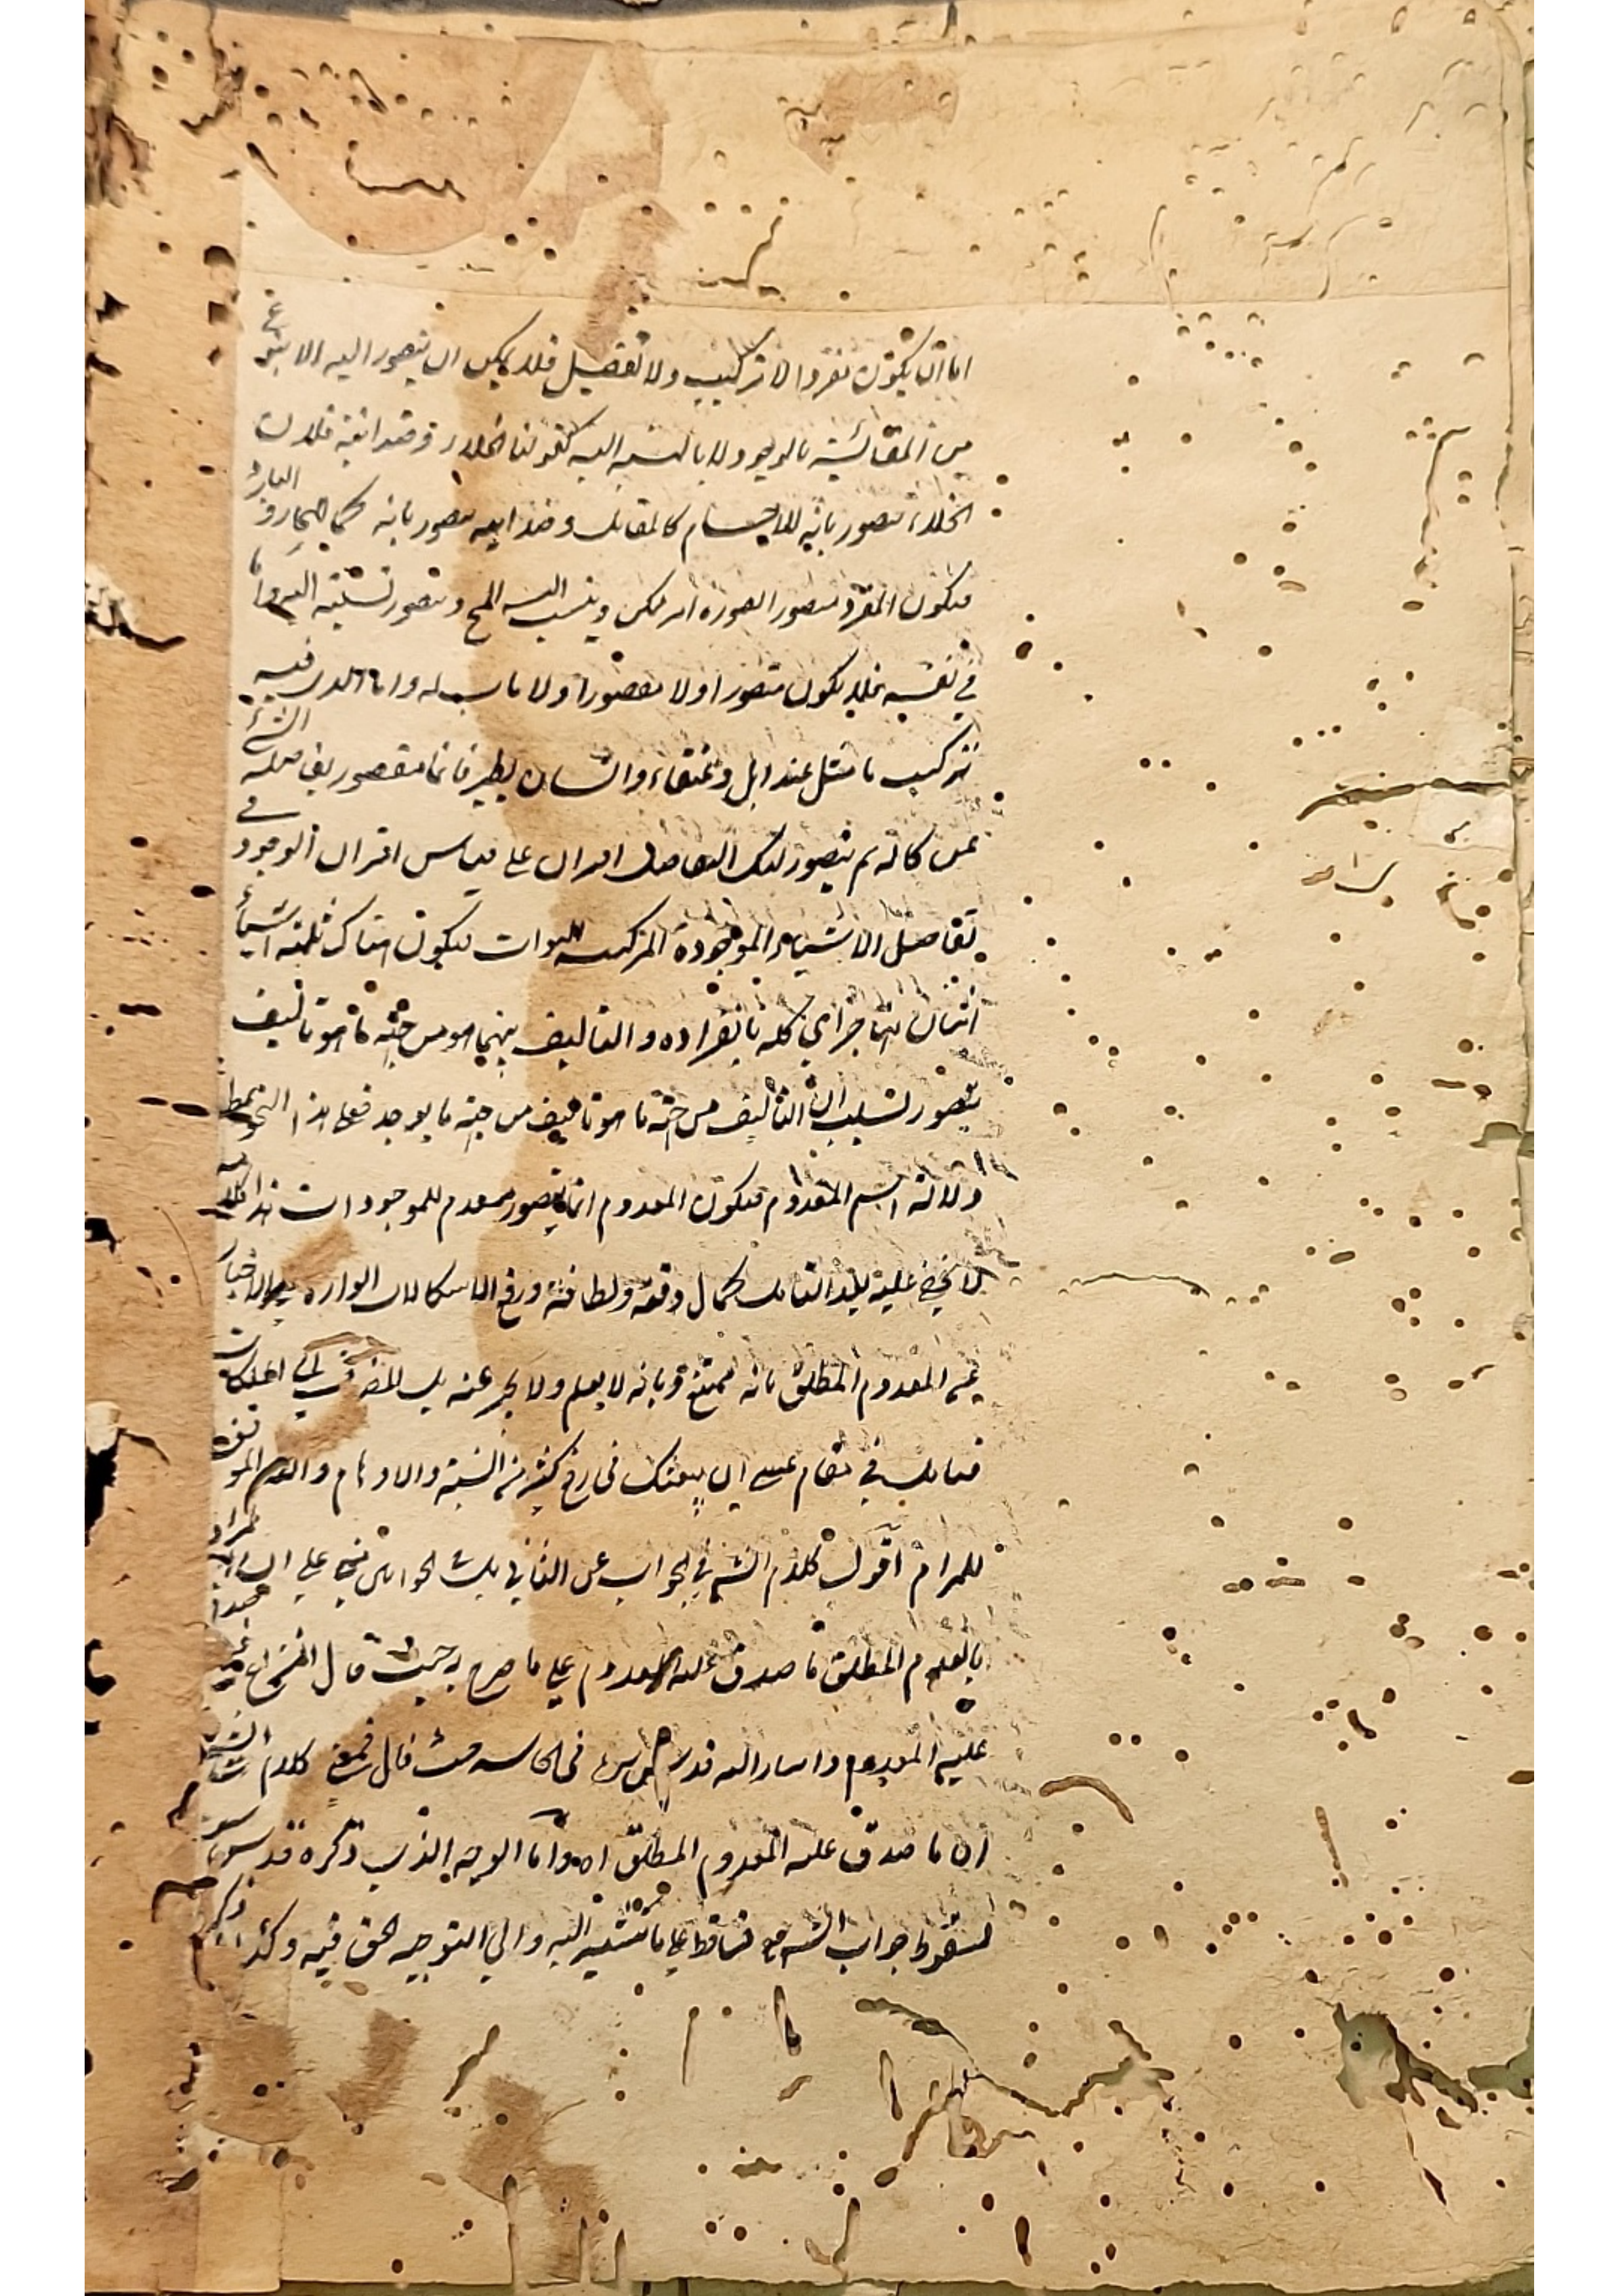 اما ان يكون مفردا لا تركيب ولا تفصيل فلا يمكن ان يتصور اليه الا بنوع
من المقائسة بالوجود ولا بالنسبة اليه كقولنا الخلاء وضد الله فان
الخلاء متصور بانه للاجسام كالقابل وضد الله يتصور بانه كما للحار البارد
فيكون المفرد متصور الصورة امر ممكن وينسب اليه المح وتتصور نسبته اليه واما
في نفسه فلا يكون متصورا ولا معقولا ولا ذات له واما الذي فيه
تركيب ما مثل عنزايل وعنقاء وانسان يطير فانما يتصور تفاصيله التي
تمس كانه ثم يتصور لتلك التفاصيل اقتران على قياس اقتران الوجود في
تفاصيل الاشياء الموجودة المركبة الذوات فيكون هناك ثلثة اشياء
اثنان منها جزاي كله بانفراده والتاليف بينهما هو من جهة ما هو تاليف
متصور بسبب ان التاليف من جهة ما هو تاليف من جهة ما يوجد فعلى هذا النحو يعطى
دلالة اسم المعدوم فيكون المعدوم انما يتصور لتقدم للموجودات هذا كلامه
لا يخفى عليك بعد التامل كمال دقته ولطافته ورفع الاشكالات الواردة على الاخبار
عن المعدوم المطلق بانه ممتنع وبانه لا يعلم ولا يخبر عنه بل المضاف الى الملكات
فتامل في مقام عسى ان ينفعك في رفع كثير من الشبه والاوهام والله الموفق
للمرام اقول كلام الش في الجواب عن الثاني بل الجوابين مبني على ان المراد
بالمعدوم المطلق ما صدق عليه المعدوم على ما صرح به حيث قال
عليه المعدوم واشار اليه قدس سره في الحاشية حيث قال فمعنى كلام الش
ان ما صدق عليه المعدوم المطلق اه واما الوجه الذي ذكره قدس سره
لسقوط جواب الش فساقط على ما نشير اليه والى التوجيه الحق فيه وكذا ذكر